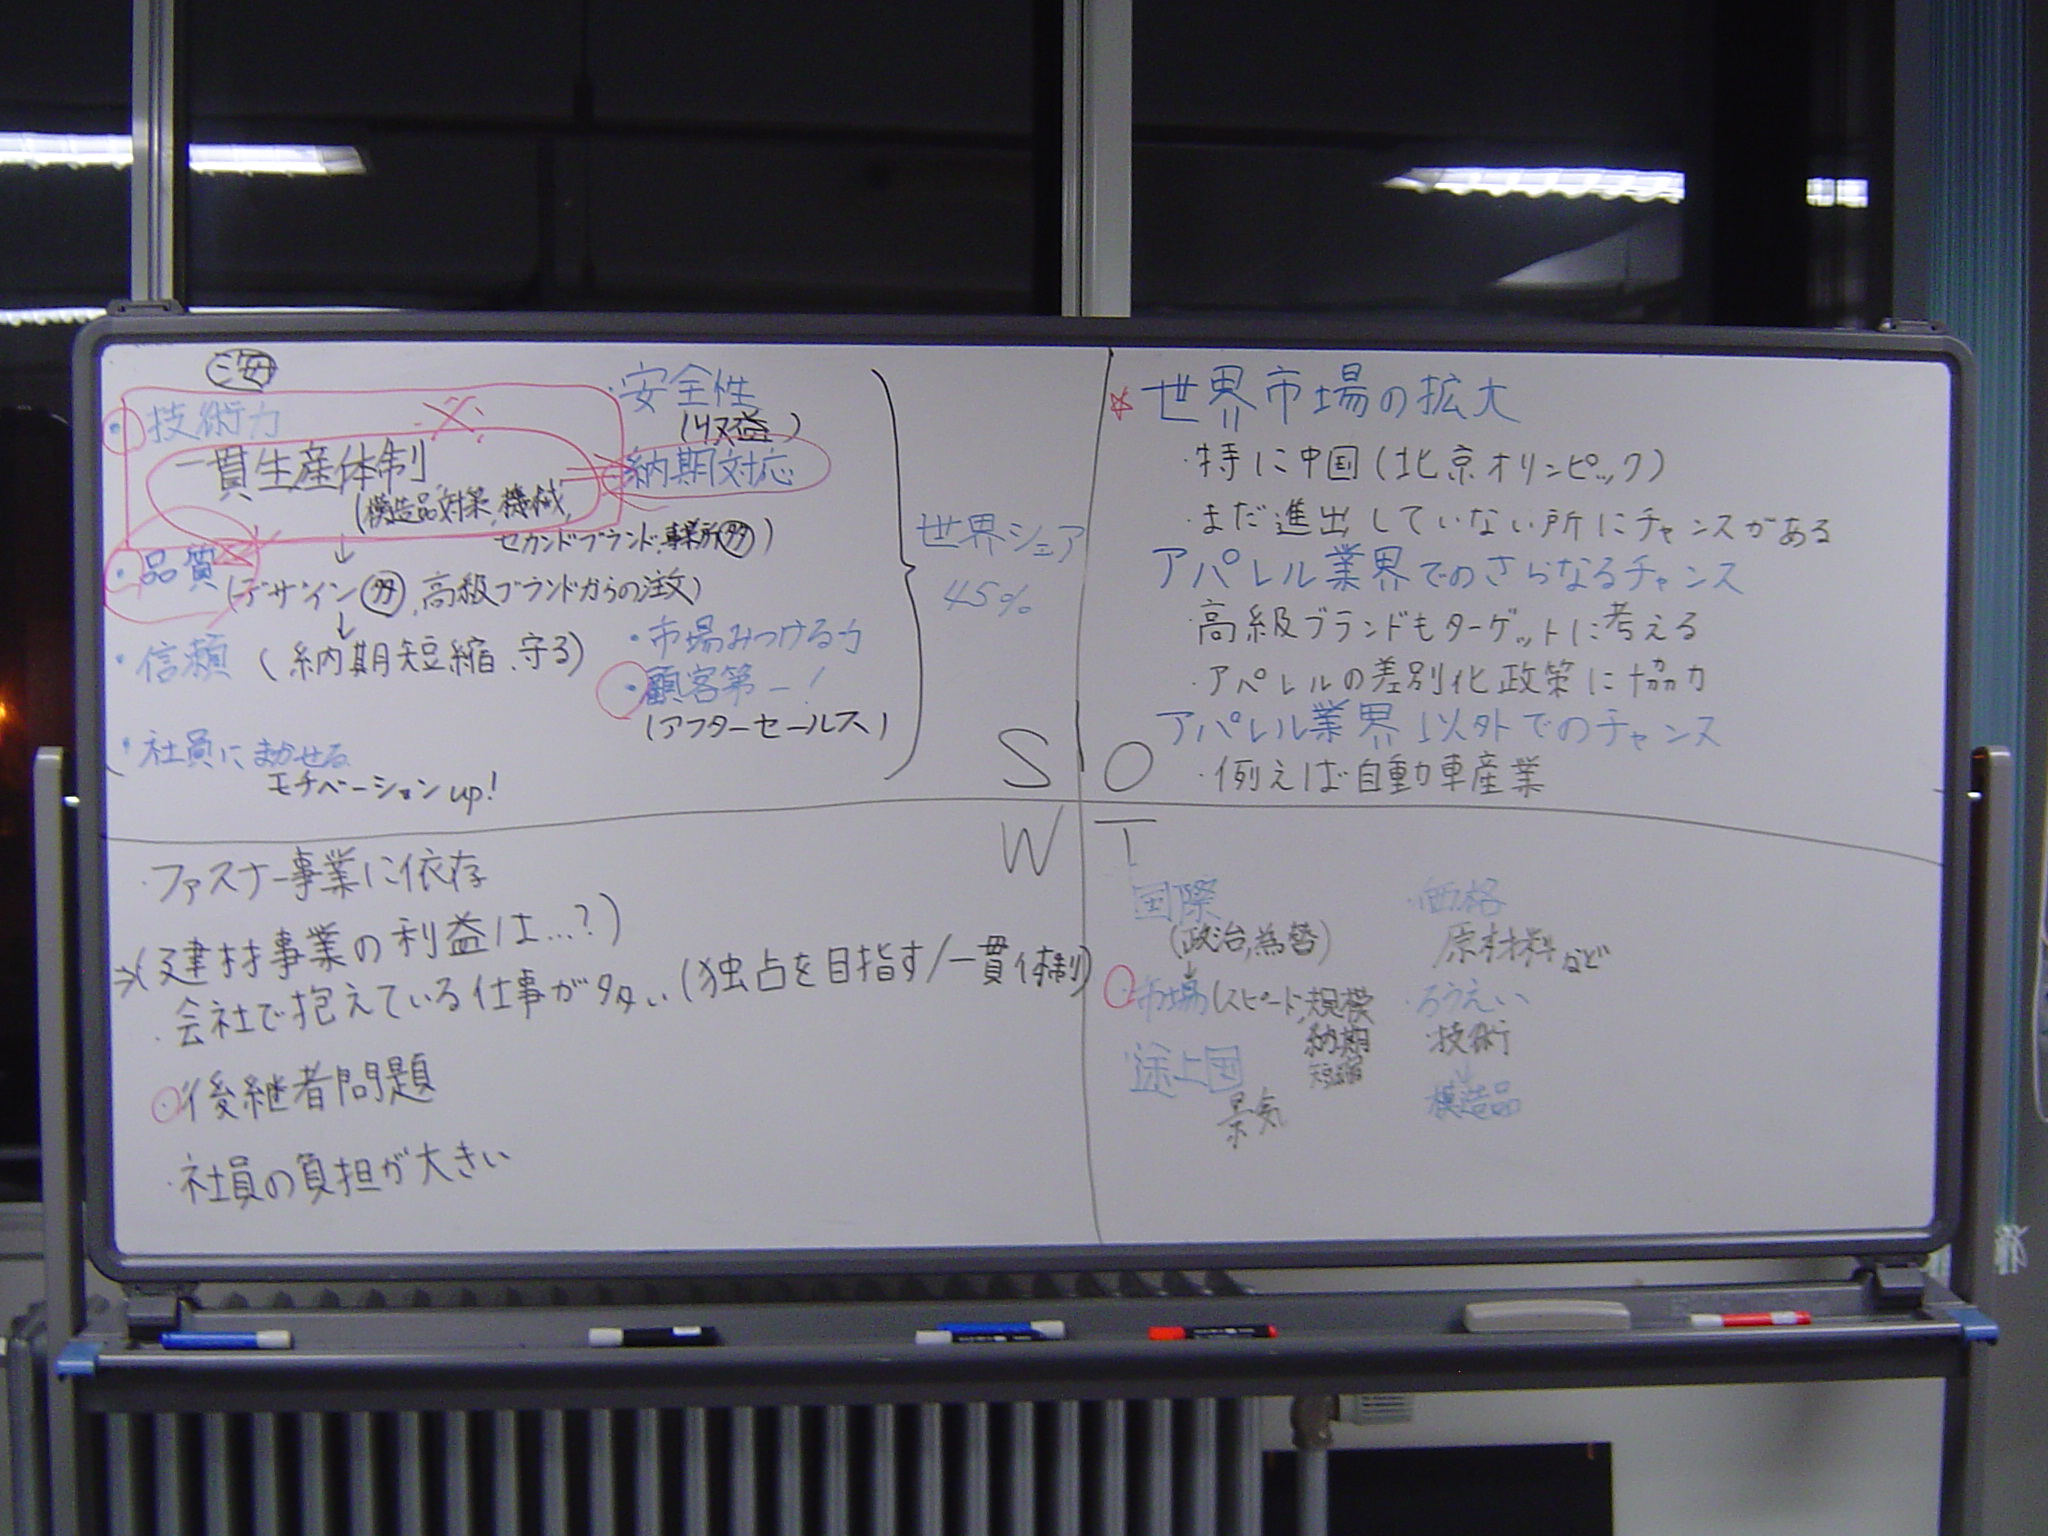 海
・技術力
一貫生産体制
(模造品対策,機械,
セカンドブランド,事業所多)
↓
・品質
(デザイン多,高級ブランドからの注文)
↓
・信頼 (納期短縮、守る)
・社員にまかせる
モチベーションup!
・安全性
(収益)
納期対応
・市場みつける力
・顧客第一!
(アフターセールス)
世界シェア
45%
S
☆世界市場の拡大
・特に中国(北京オリンピック)
・まだ進出していない所にチャンスがある
アパレル業界でのさらなるチャンス
・高級ブランドもターゲットに考える
・アパレルの差別化政策に協力
アパレル業界以外でのチャンス
・例えば自動車産業
O
W
・ファスナー事業に依存
⇒(建材事業の利益は…?)
・会社で抱えている仕事が多い(独占を目指す/一貫体制)
・後継者問題
・社員の負担が大きい
T
国際
(政治,為替)
↓
・市場(スピード,規模
納期
短縮
・途上国
景気
・価格
原材料など
・ろうえい
・技術
↓
模造品